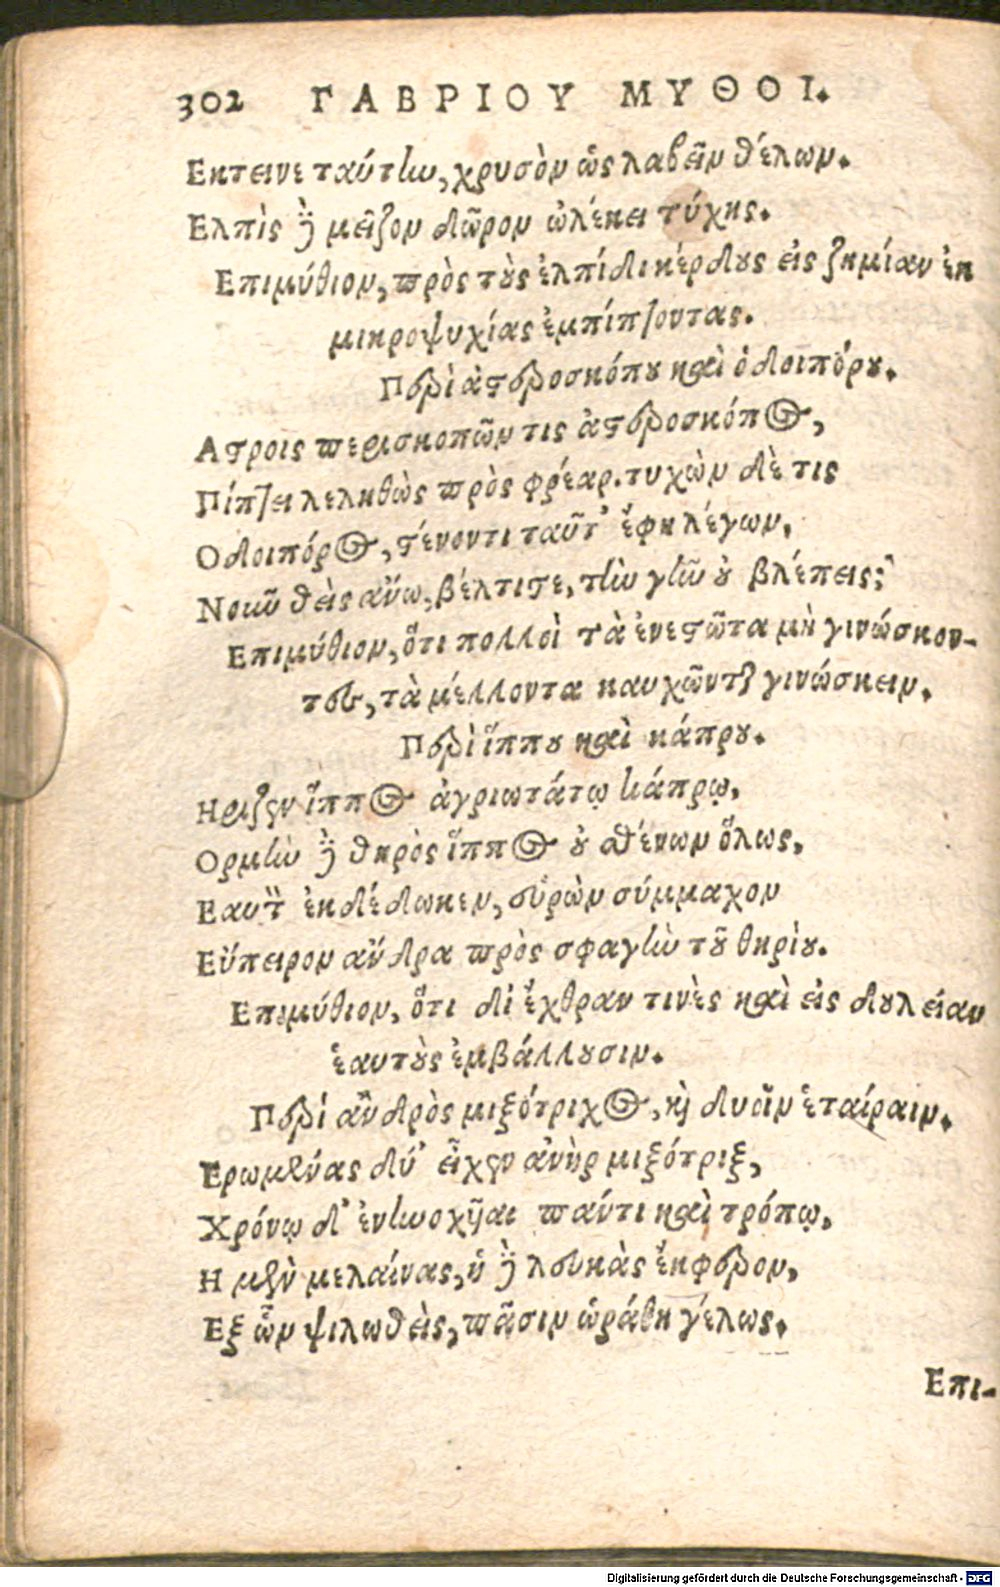 302 ΓΑΒΡΙΟΥ ΜΥΘΟΙ.
Εκτεινε ταύτην, χρυσὸν ὡς λαβεῖν θέλων.
Ελπὶς δὲ μεῖζον δῶρον ὠλέκει τύχης.
Επιμύθιον, πρὸς τοὺς ἐλπίδι κέρδους εἰς ζημίαν ἐκ
μικροψυχίας ἐμπίπτοντας.
Περὶ ἀστεροσκόπου καὶ ὁδοιπόρου.
Αστροις περισκοπῶν τις ἀστεροσκόπος,
Πίπτει λεληθὼς πρὸς φρέαρ. τυχὼν δὲ τις
Οδοιπόρος, στένοντι ταῦτ' ἔφη λέγων,
Νοῦν θεὶς ἄνω, βέλτιστε, τὴν γῆν οὐ βλέπεις;
Επιμύθιον, ὅτι πολλοὶ τὰ ἐνεστῶτα μὴ γινώσκον-
τες, τὰ μέλλοντα καυχῶνται γινώσκειν.
Περὶ ἵππου καὶ κάπρου.
Ηριζεν ἵππος ἀγριωτάτῳ κάπρῳ,
Ορμὴν δὲ θηρὸς ἵππος οὐ σθένων ὅλως,
Εαυτὸν ἐκδέδωκεν, εὑρὼν σύμμαχον
Εὔπειρον ἄνδρα πρὸς σφαγὴν τοῦ θηρίου.
Επιμύθιον, ὅτι δι' ἔχθραν τινὲς καὶ εἰς δουλείαν
ἑαυτοὺς ἐμβάλλουσιν.
Περί ἀνδρὸς μιξότριχος, καὶ δυσὶν ἑταίραιν.
Ερωμένας δύ' εἶχεν ἀνὴρ μιξότριξ,
Χρόνῳ δ' ἐνηνοχῆαι παντι καὶ τρόπῳ,
Η μὲν μελαίνας, ἡ δὲ λευκὰς ἔκφερον,
Εξ ὧν ψιλωθεὶς, πᾶσιν ὡράθη γέλως.
Επι-
Digitalisierung gefördert durch die Deutsche Forschungsgemeinschaft - DFG